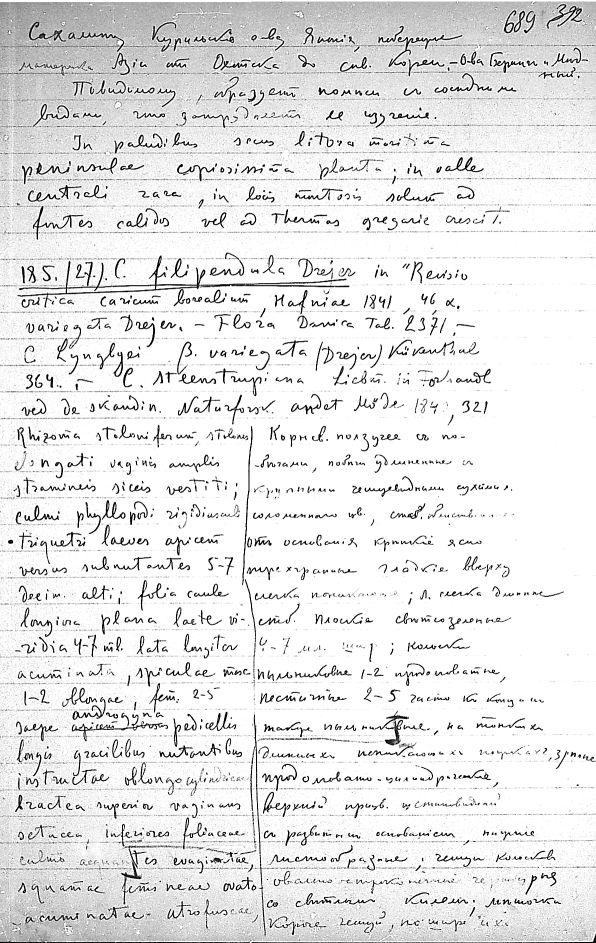 689 392
Сахалину, Курильск. о-ва, Японія, побережье
материка Азіи от Охотска до сѣв. Кореи, – О-ва Беринга и Мѣдный.
Повидимому, образует помѣси съ сосѣдними
видами, что затрудняет ее изученіе.
In paludibus secus litora maritima
peninsulae copiosissima planta; in valle
centrali rara, in locis montosis solum ad
fontes calidos vel ad thermas gregarie crescit.
185. (27.) C. filipendula Drejer in "Revisio
critica caricum borealium, Hafniae 1841, 46, α.
variegata Drejer. – Flora Danica Tab. 2371, –
C. Lyngbyei β. variegata (Drejer) Kükenthal
364. – C. Steenstrupiana Liebm. in Forhandl
ved de skandin. Naturforsk. andet Möde 184, 321
Rhizoma stoloniferum, stolones
elongati vaginis amplis
stramineis siccis vestiti;
culmi phyllopodi rigidiusculi
triquetri laeves apicem
versus subnutantes 5-7
decim. alti; folia caule
longiora plana laete vi-
-ridia 4-7 ml. lata longiter
acuminata, spiculae masc
1-2 oblongae, fem. 2-5
saepe androgyna pedicellis
longis gracilibus nutantibus
instructae oblongo cylindricae
bractea superior vaginans
setacea, inferiores foliaceae
culmo aequantes evaginatae,
squamae femineae ovato
acuminatae atrofuscae,
Корнев. ползучее съ по-
бѣгами, побѣги удлиненные съ
крупными чешуевидными сухими.
соломеннаго цв., стеб.
отъ основанія крѣпкіе ясно
трехгранные гладкіе вверху
слегка поникающіе; л. слегка длиннѣе
стб. плоскіе свѣтлозеленые
4-7 мл. шир.; колоски
пыльниковые 1-2 продолговатые,
пестичные 2-5 часто на концахъ
также пыльниковые, на тонкихъ
длинныхъ поникающихъ ножкахъ,
продолговато-цилиндрическіе,
верхній прицв. щетиновидный
съ развитымъ основаніемъ, нижніе
листообразные; чешуи колосковъ
овально
со свѣтлымъ килемъ; мѣшочки
короче чешуй, по ширѣ ихъ